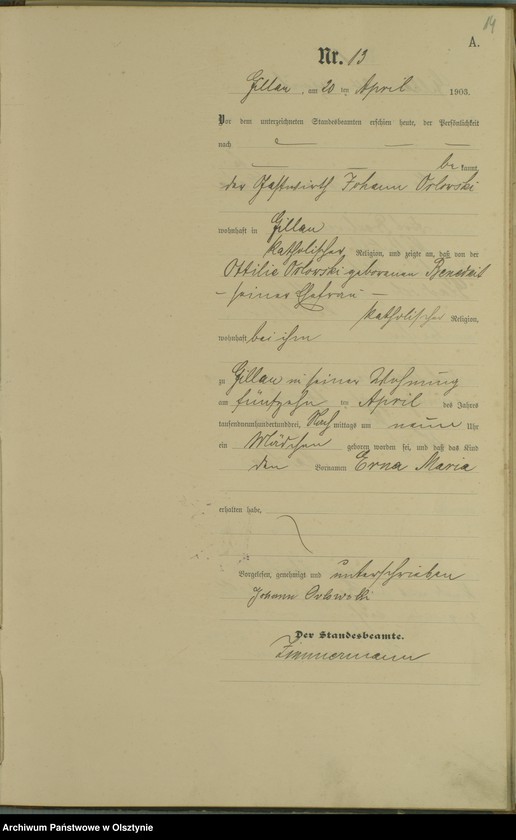 14
A.
Nr. 13
Gillau, am 20 ten April 1903.
Vor dem unterzeichneten Standesbeamten erschien heute, der Persönlichkeit
nach
be kannt,
der Gastwirth Johann Orlovski
wohnhaft in Gillau
katholischer Religion, und zeigte an, daß von der
Ottilie Orlovski geborenen
– seiner Ehefrau –
katholischer Religion,
wohnhaft bei ihm
zu Gillau in seiner Wohnung
am fünfzehn ten April des Jahres
tausendneunhundertunddrei, Nachmittags um neun Uhr
ein Mädchen geboren worden sei, und daß das Kind
den Vornamen Erna Maria
erhalten habe,
Vorgelesen, genehmigt und unterschrieben
Johann Orlowski
Der Standesbeamte.
Zimmermann
Archiwum Państwowe w Olsztynie